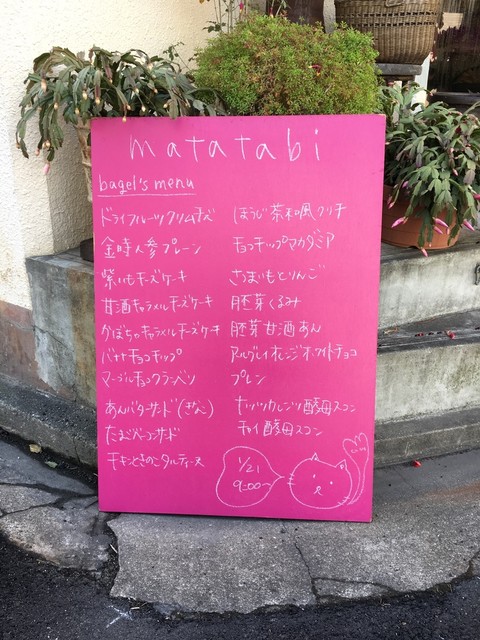 matatabi
bagel's menu
ドライフルーツクリームチーズ
金時人参プレーン
紫いもチーズケーキ
甘酒キャラメルチーズケーキ
かぼちゃキャラメルチーズケーキ
バナナチョコチップ
マーブルチョコクランベリー
あんバターサンド(ぎんなん)
たまごベーコンサンド
チキンときのこタルティーヌ
ほうじ茶和風クリチ
チョコチップマカダミア
さつまいもとりんご
胚芽くるみ
胚芽甘酒あん
アールグレイオレンジホワイトチョコ
プレーン
ナッツカレンツ酵母スコン
チャイ酵母スコン
1/21
9:00〜